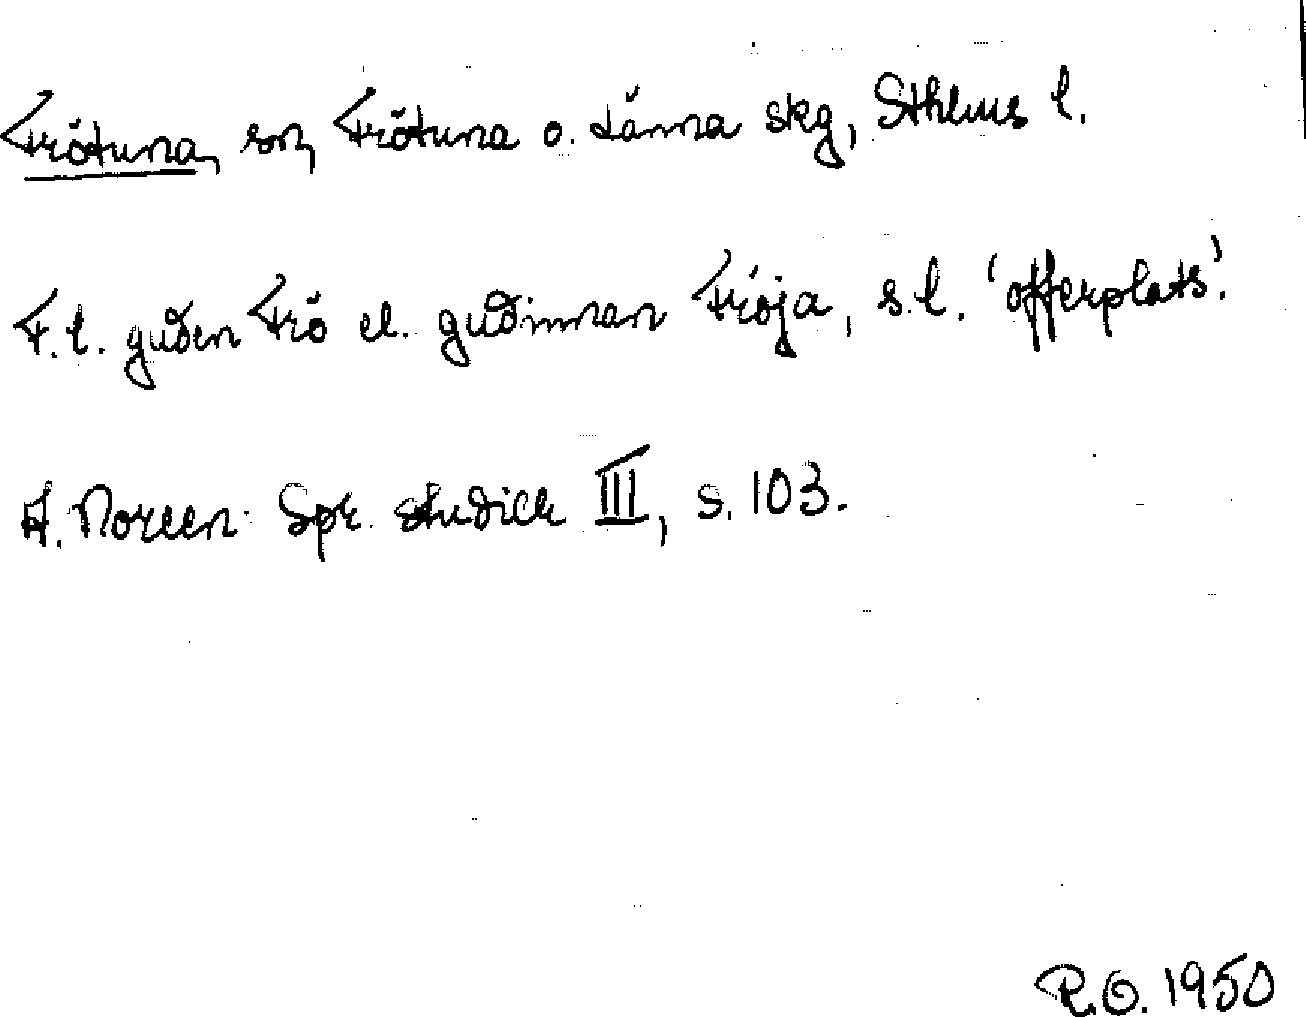 Frötuna, sn, Frötuna o. Länna skg, Sthlms l.
F.l. guden Frö el. gudinnan Fröja, s.l. 'offerplats'.
A. Noreen Spr. studier III, s. 103.
R.O. 1950